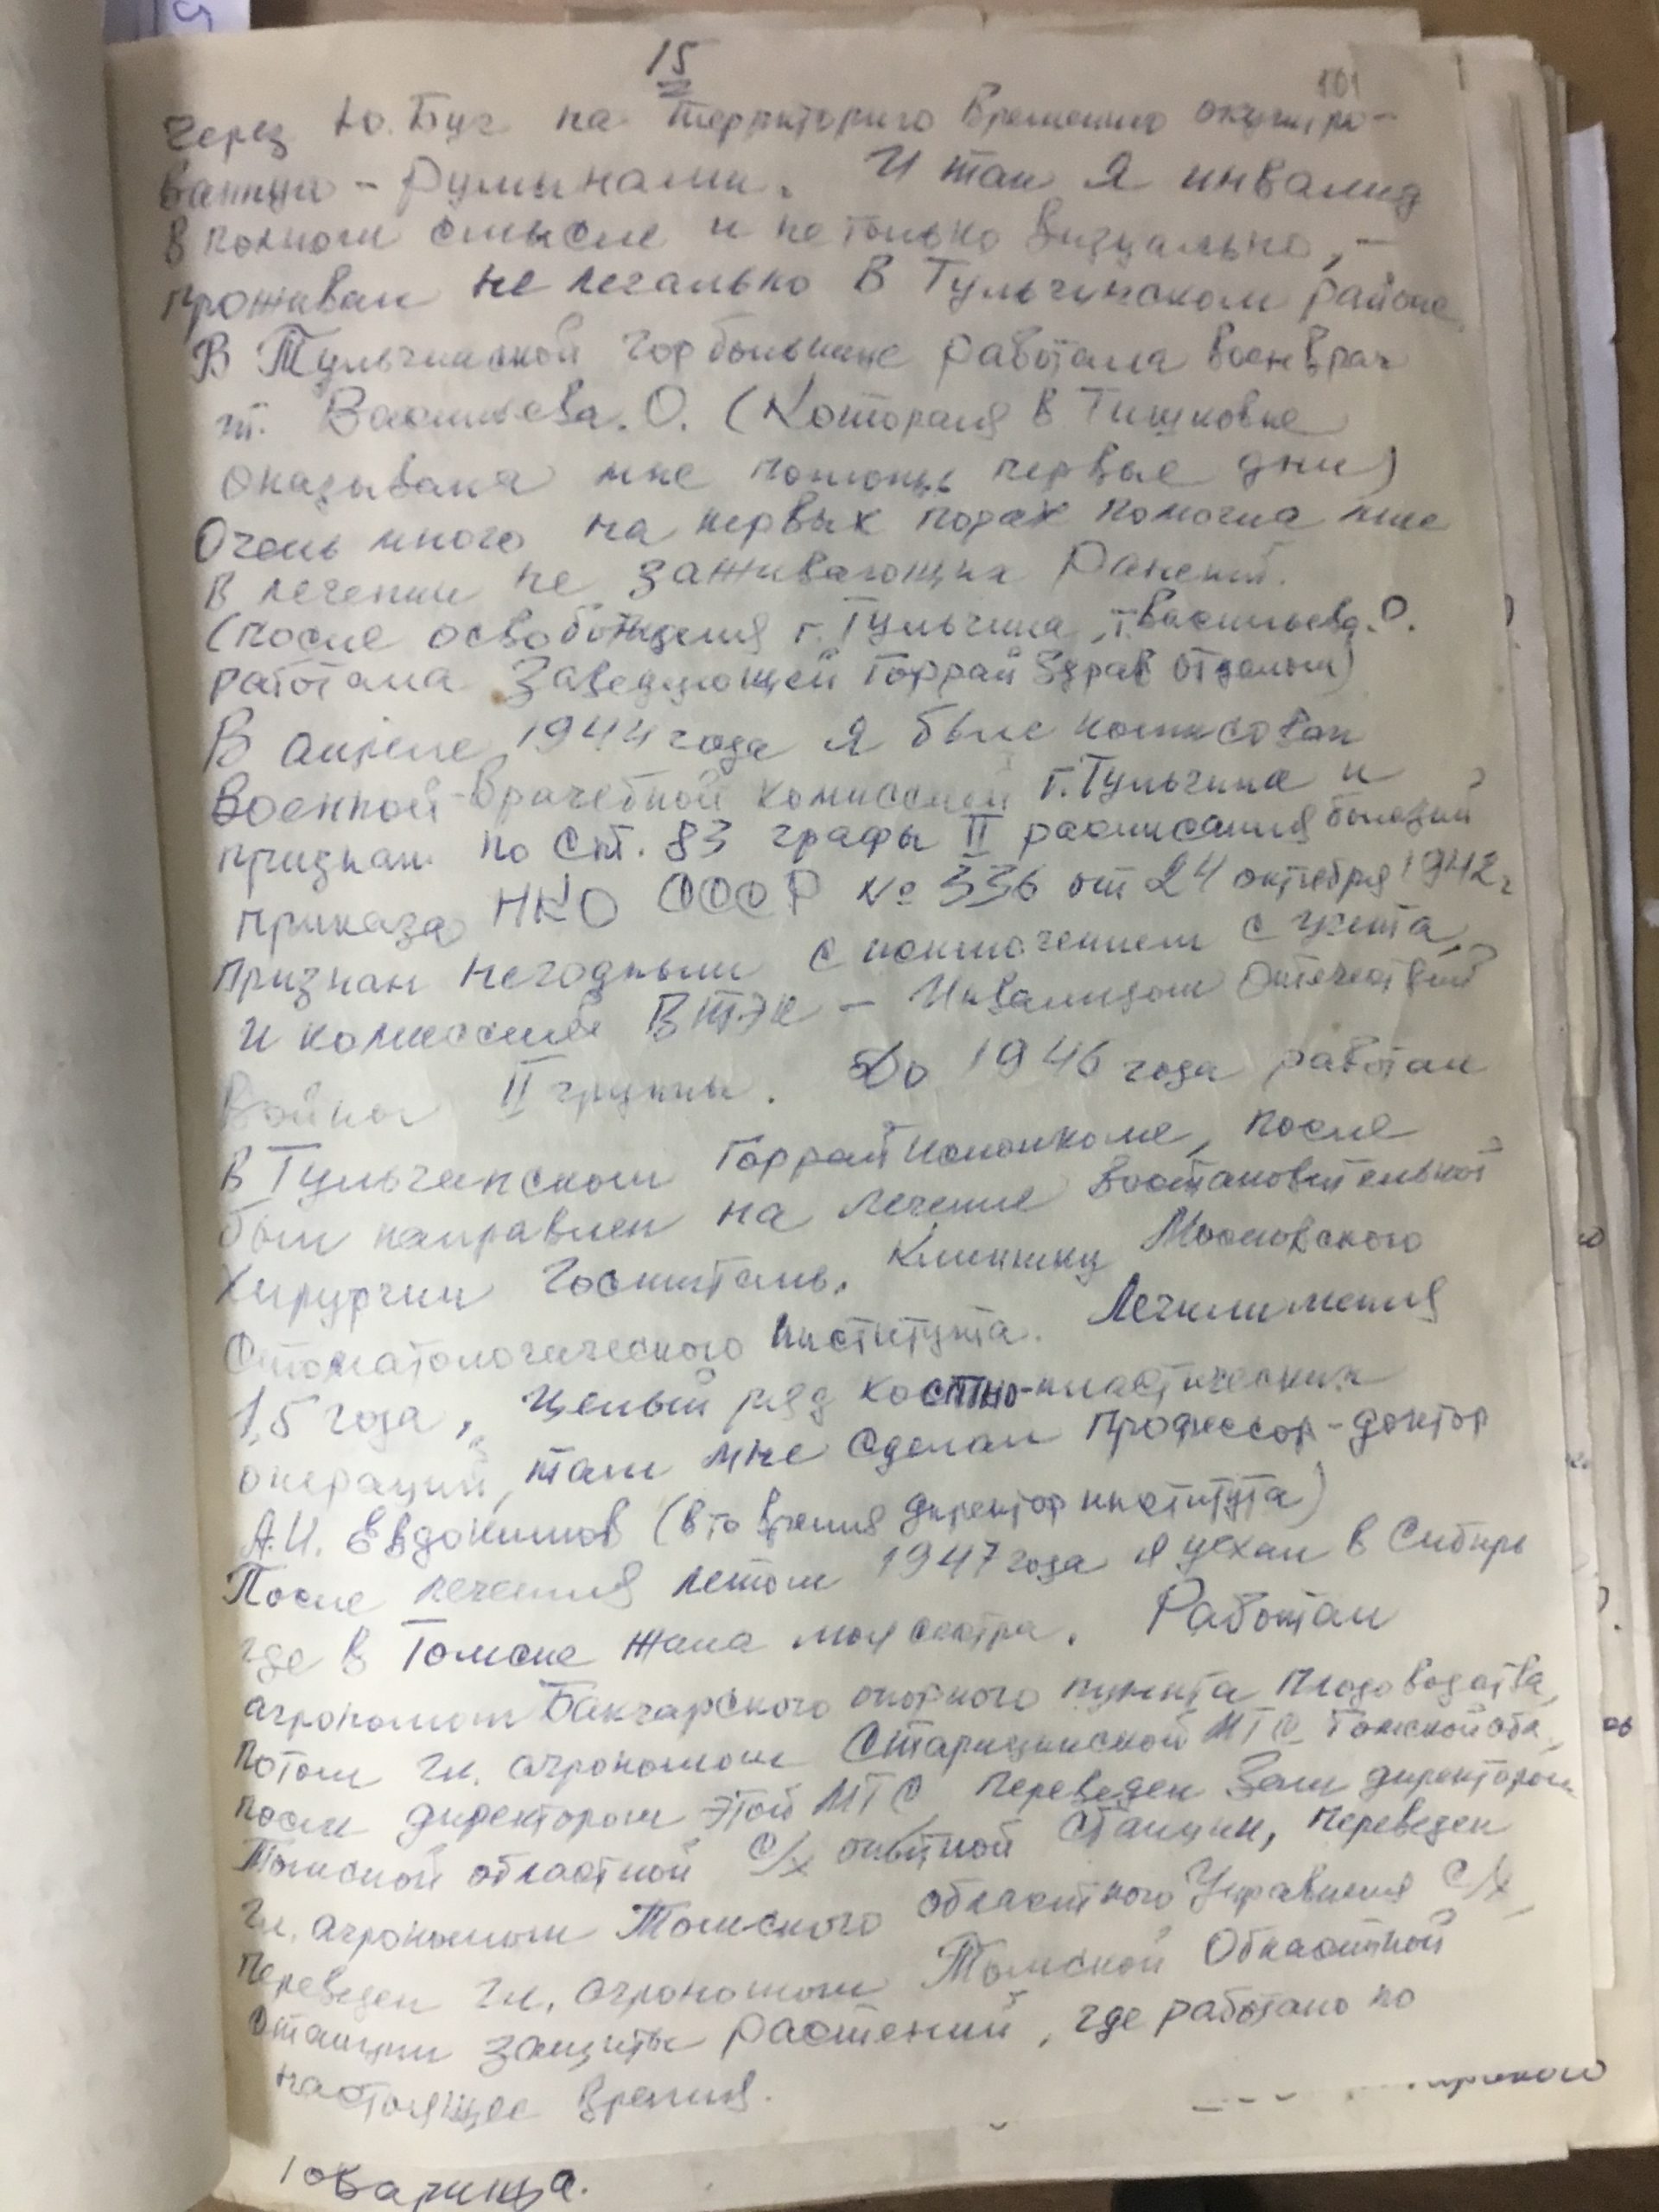 15
101
Через Ю. Буг на территорию временно окупиро-
ванную - Румынами. И так я инвалид
в полном смысле и не только визуально, -
проживал не легально в Тульчинском районе
В Тульчинской горбольнице работала военврач
т. Васильева. О. (Которая в Тишковке
оказывала мне помощь первые дни)
Очень много на первых порах помогла мне
в лечении не заживающих ранений.
(после освобождения г. Тульчина, т. Васильева. О.
работала Заведующей Горрай здрав отделом)
В апреле 1944 года я был комисован
Военной-врачебной комиссией г. Тульчина и
признан по ст. 83 графы II расписания болезний
приказа НКО СССР № 336 от 24 октября 1942 г
признан негодным с исключением с учета,
и комиссией ВТЭК - Инвалидом Отечествен
войны II группы. До 1946 года работал
в Тульчинском Горрайисполкоме, после
был направлен на лечение Востановительной
Хирургии Госпиталь. Клинику Московского
Стоматологического института. Лечили меня
1,5 года, целый ряд костно-пластических
операций, там мне сделал профессор-доктор
А.И. Евдокимов (в то время директор института)
После лечения летом 1947 года я уехал в Сибирь
где в Томске жила моя сестра. Работал
агрономом Бакчарского опорного пункта плодоводства,
потом гл. агрономом Старицинской МТС Томской обл,
после директором этой МТС, переведен Зам директором
Томской областной с/х опытной станции, переведен
гл. агрономом Томского областного Управления с/х,
переведен гл. агрономом Томской Областной
станции защиты растений, где работаю по
настоящее время.
товарища.